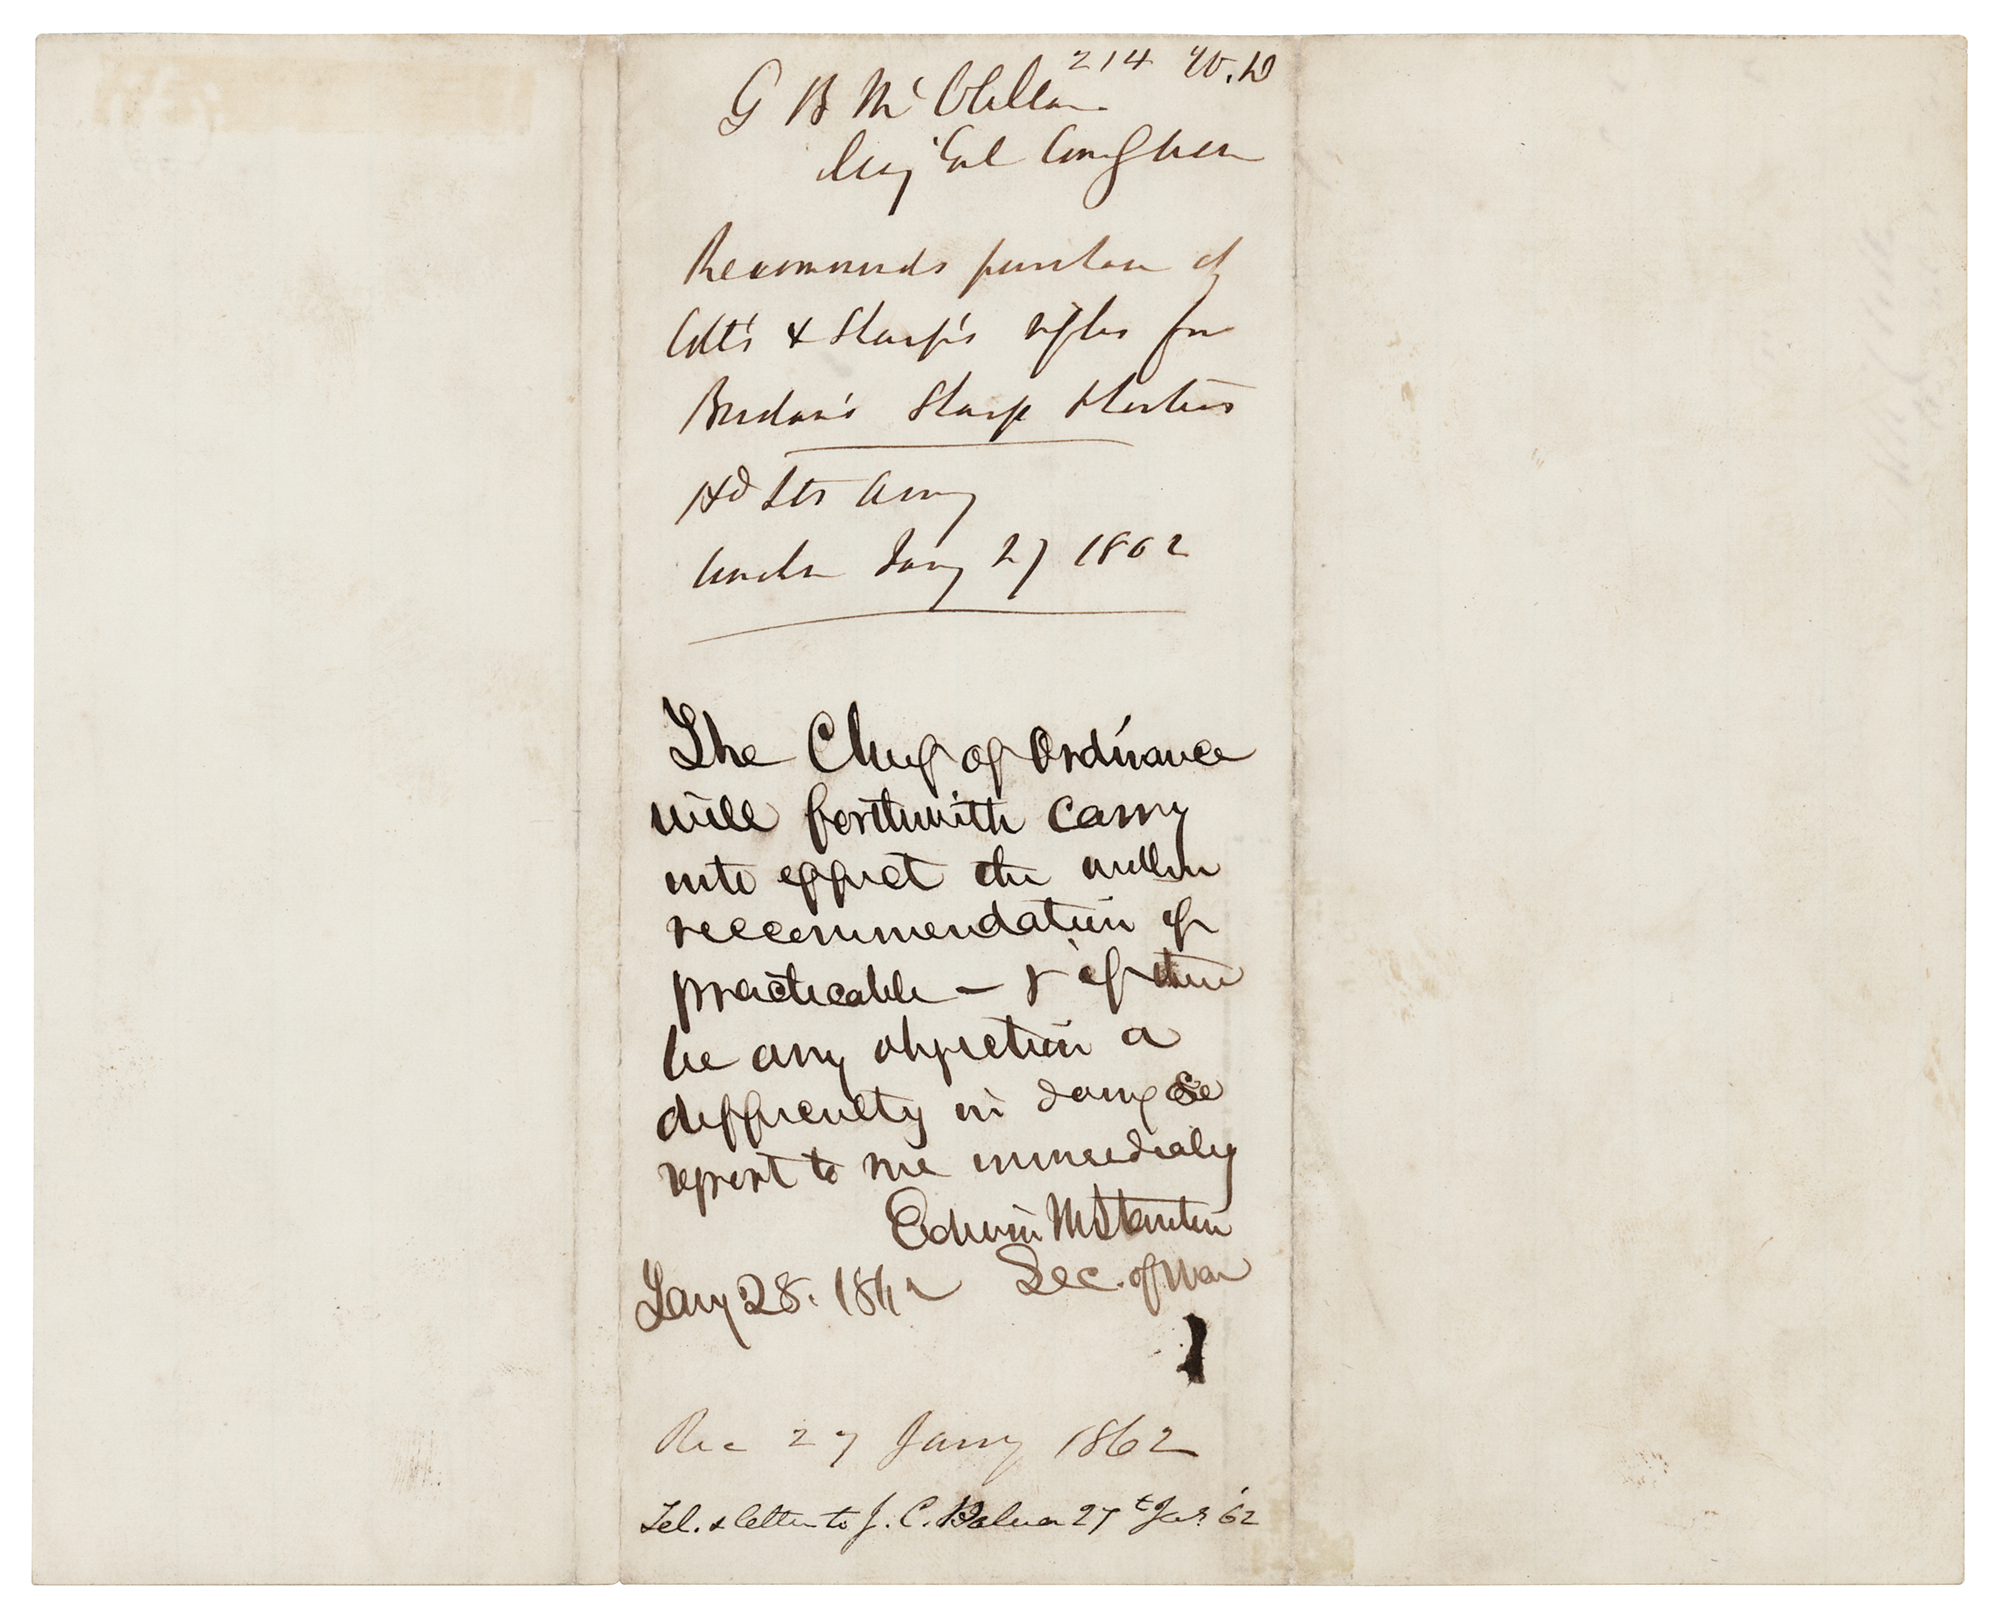 214 W.D
G B McClellan
Maj Genl Comg
Recommends purchase of
Colt's & Sharp's rifles for
Berdan's Sharp Shooters
Hd Qts Army
Jany 27 1862
The Chief of Ordnance
will forthwith carry
into effect the within
reccommendation if
practicable – & if there
be any objection or
difficulty in doing so
report to me immediately
Edwin M Stanton
Sec. of War
Jany 28. 1862
Rec 27 Jany 1862
Tel. & letter to J. C. Palmer 27t Jany '62